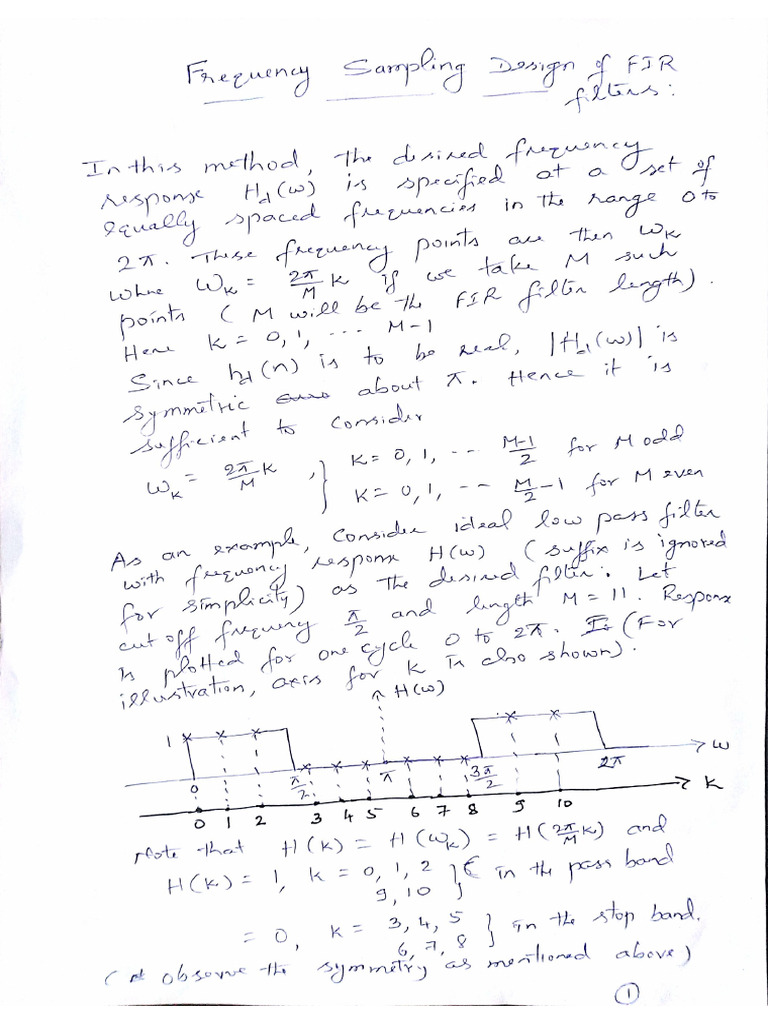 Frequency Sampling Design of FIR
filters:
In this method, the desired frequency
response H_d(ω) is specified at a set of
equally spaced frequencies in the range 0 to
2π. These frequency points are then ω_K
where ω_K = 2π/M k if we take M such
points (M will be the FIR filter length).
Here k = 0, 1, ... M-1
Since h_d(n) is to be real, |H_d(ω)| is
symmetric about π. Hence it is
sufficient to consider
ω_K = 2π/M k , } k = 0, 1, -- M-1/2 for M odd
k = 0, 1, -- M/2 -1 for M even
As an example, consider ideal low pass filter
with frequency response H(ω) (suffix is ignored
for simplicity) as the desired filter. Let
cut off frequency π/2 and length M = 11. Response
is plotted for one cycle 0 to 2π. (For
illustration, axis for k is also shown).
H(ω)
1
0 π/2 π 3π/2 2π ω
K
0 1 2 3 4 5 6 7 8 9 10
Note that H(k) = H(ω_K) = H(2π/M k) and
H(k) = 1, k = 0, 1, 2 } in the pass band
9, 10
= 0, k = 3, 4, 5 } in the stop band.
6, 7, 8
(observe the symmetry as mentioned above)
1